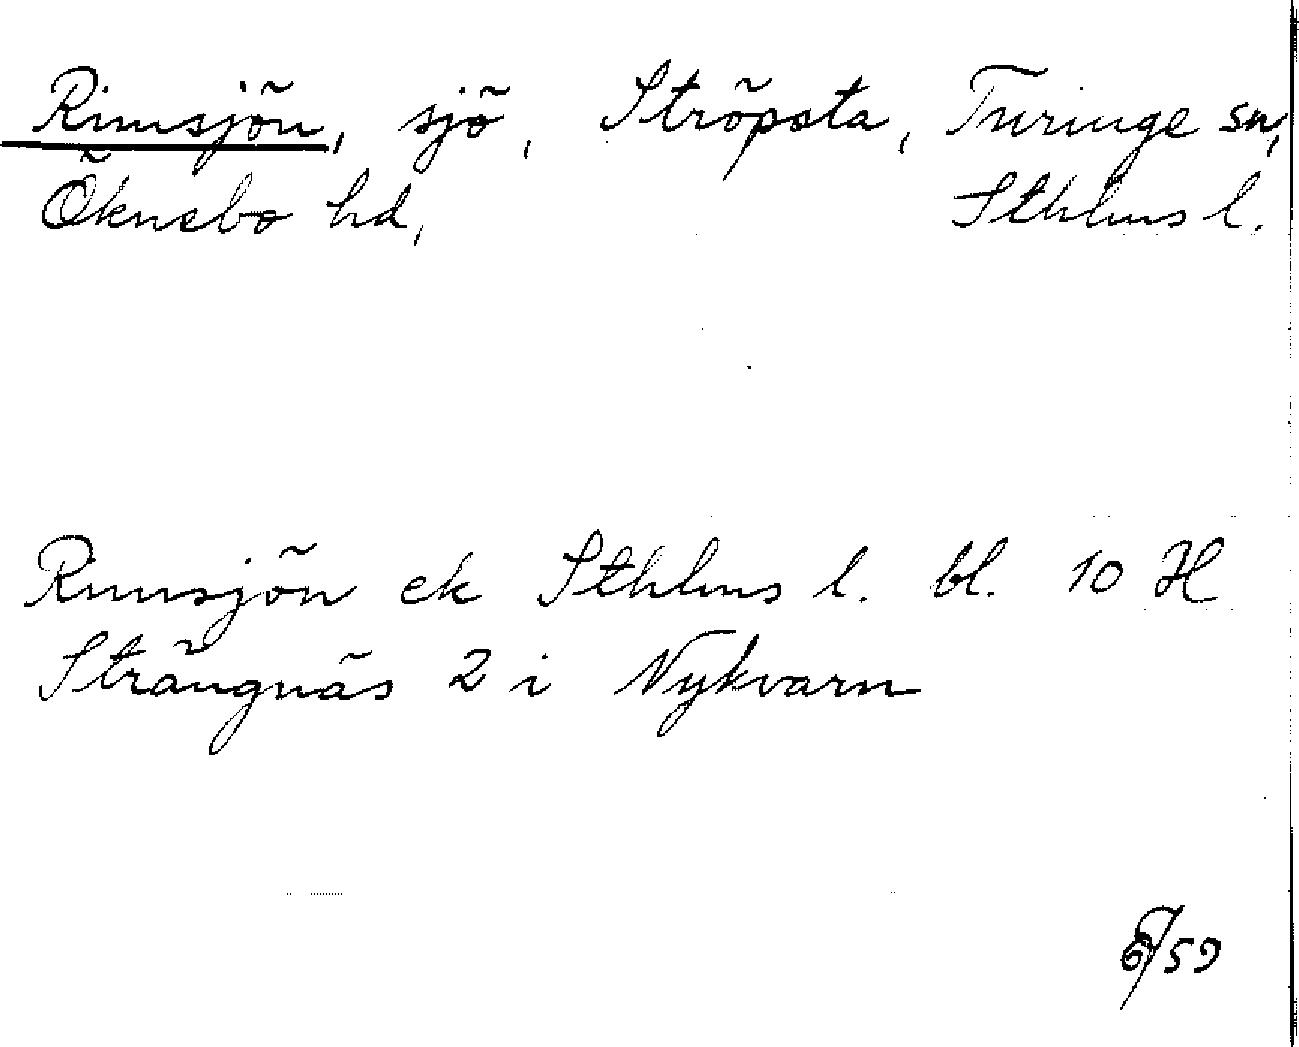 Rimsjön, sjö, Ströpsta, Turinge sn,
Öknebo hd, Sthlms l.
Rimsjön ek Sthlms l. bl. 10 H
Strängnäs 2 i Nykvarn
/59